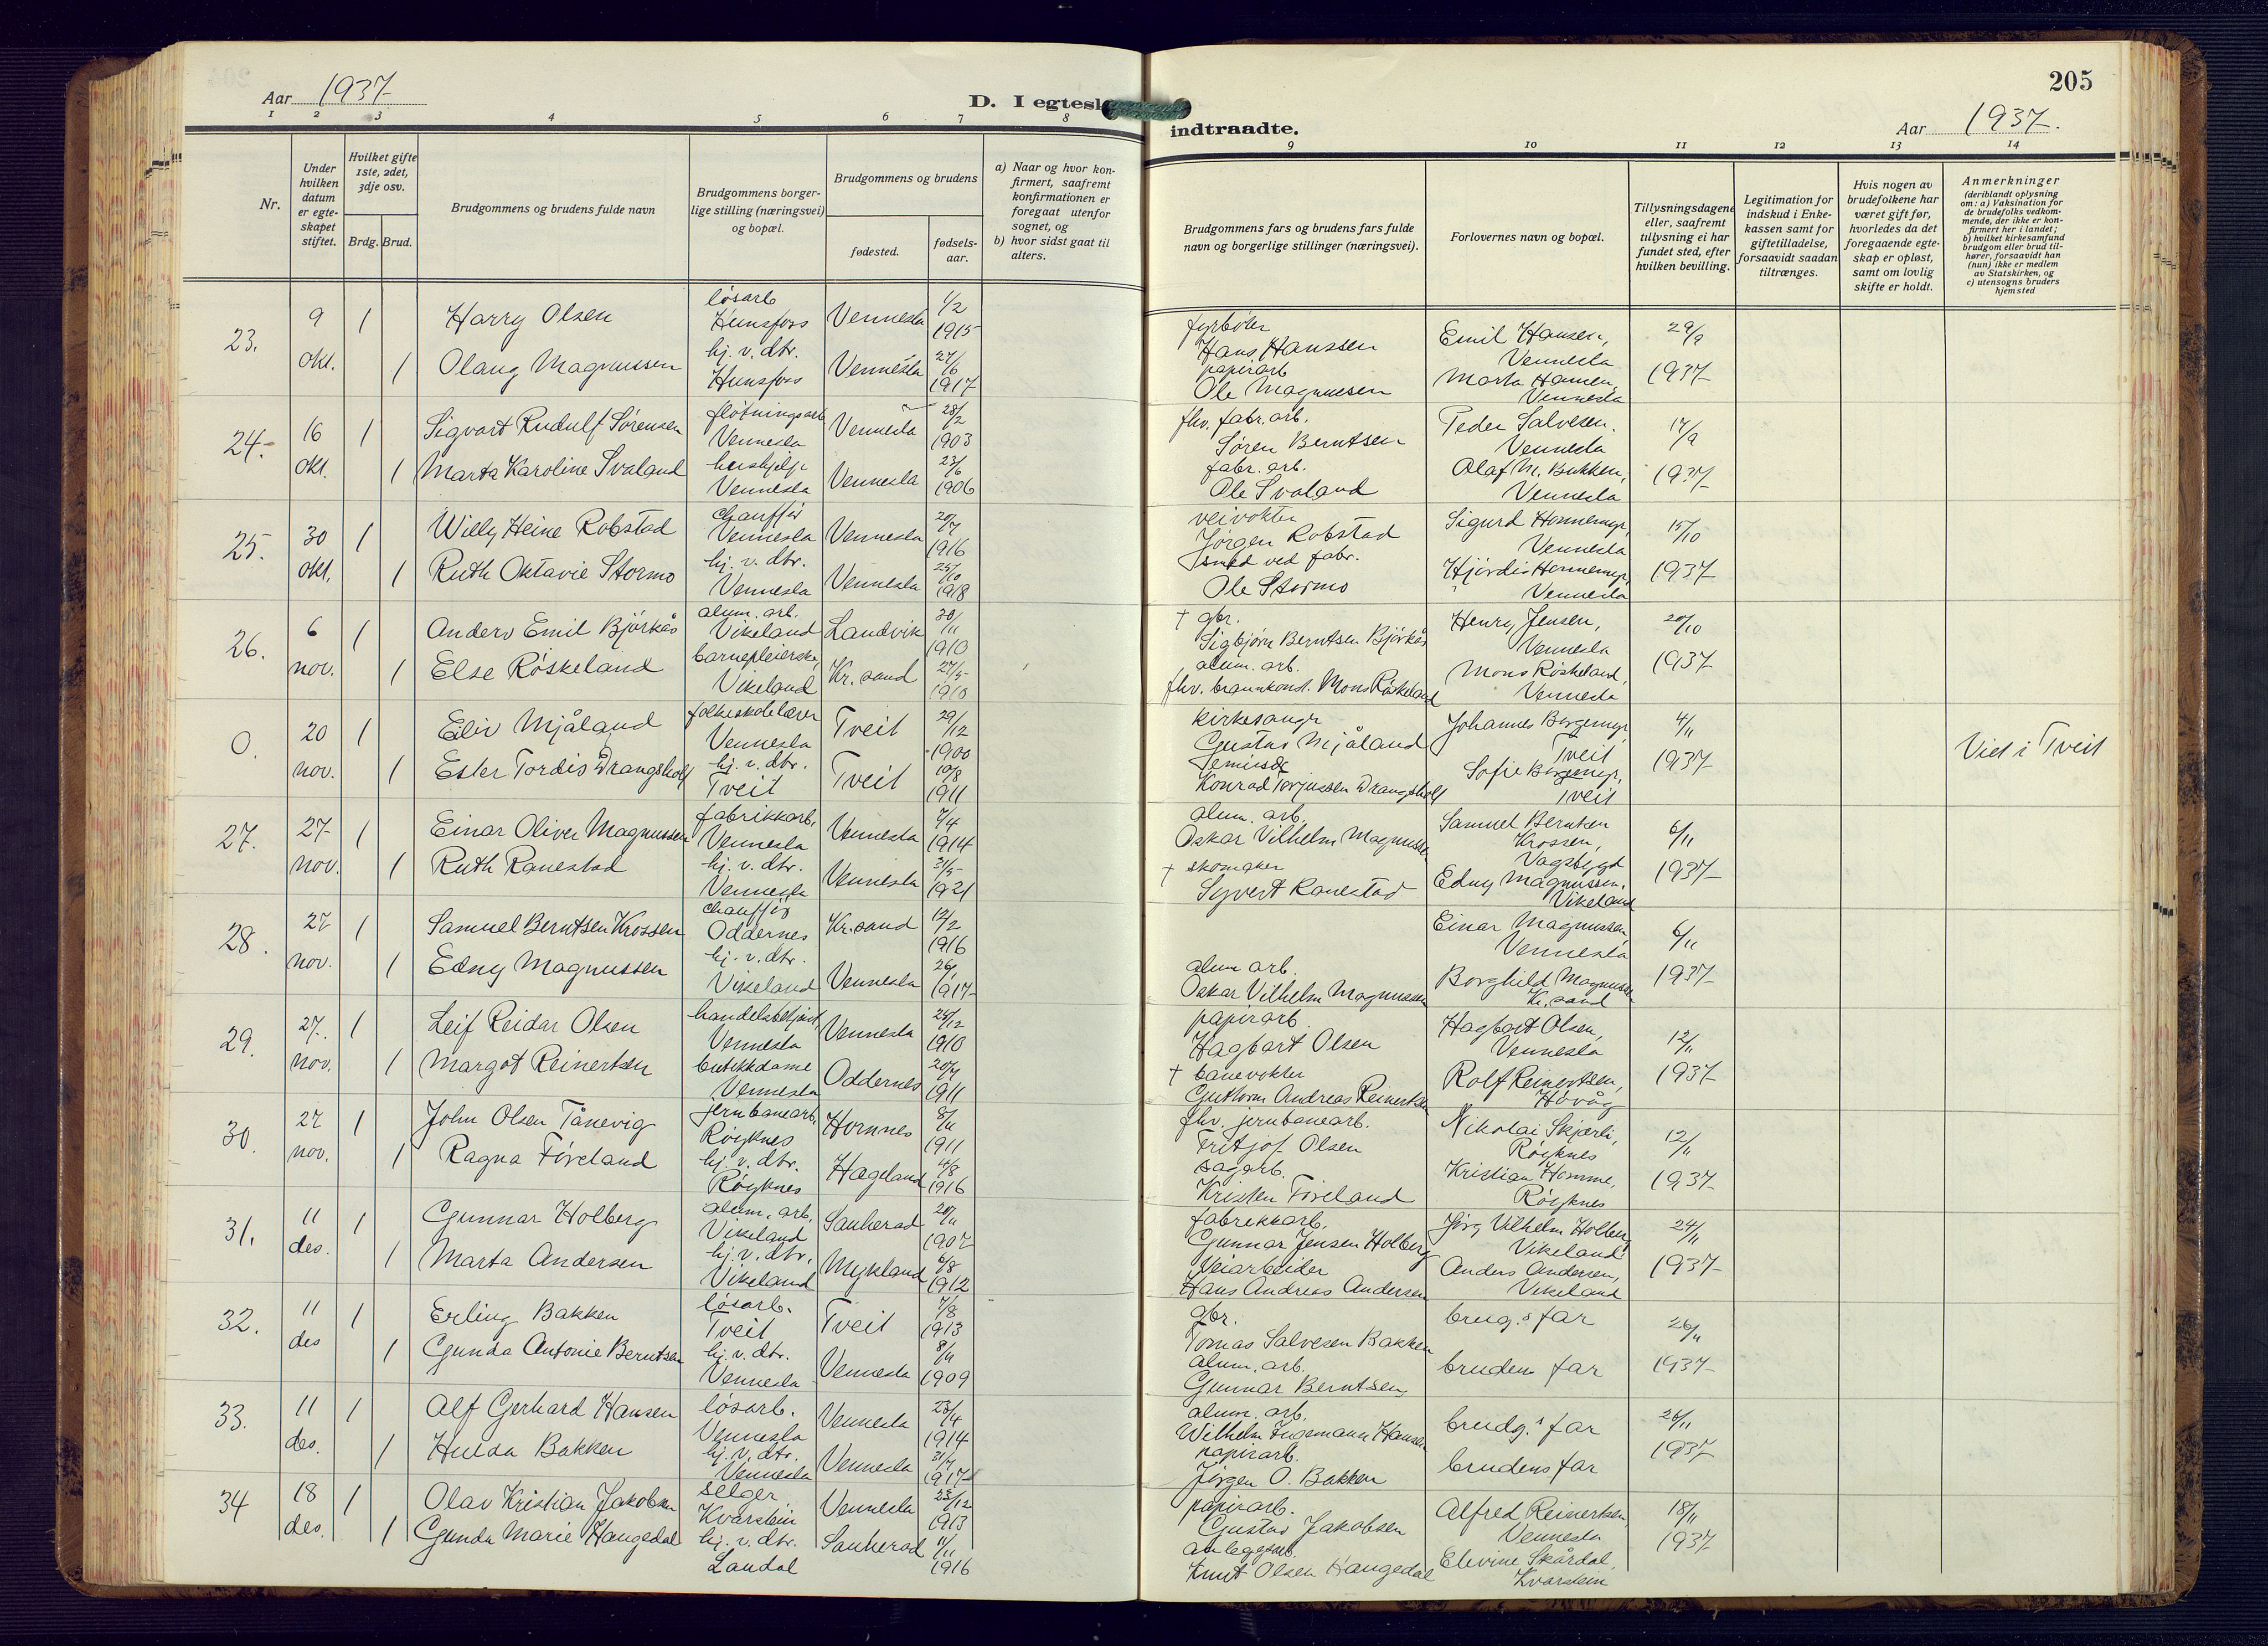 205
Aar 1937
D. Iegtesk
indtraadte.
Aar 1937.
1 2 3 4 5 6 7 8 9 10 11 12 13 14
Nr.
Under hvilken datum er egte-skapet stiftet.
Hvilket gifte 1ste, 2det, 3dje osv.
Brdg. Brud.
Brudgommens og brudens fulde navn
Brudgommens borger-lige stilling (næringsvei) og bopæl.
Brudgommens og brudens
fødested.
fødsels-aar.
a) Naar og hvor kon-firmert, saafremt konfirmationen er foregaat utenfor sognet, og
b) hvor sidst gaat til alters.
Brudgommens fars og brudens fars fulde navn og borgerlige stillinger (næringsvei).
Forlovernes navn og bopæl.
Tillysningsdagene eller, saafremt tillysning ei har fundet sted, efter hvilken bevilling.
Legitimation for indskud i Enke-kassen samt for giftetilladelse, forsaavidt saadan tiltrænges.
Hvis nogen av brudefolkene har været gift før, hvorledes da det foregaaende egte-skap er opløst, samt om lovlig skifte er holdt.
Anmerkninger (deriblandt oplysning om: a) Vaksination for de brudefolks vedkom-mende, der ikke er kon-firmert her i landet; b) hvilket kirkesamfund brudgom eller brud til-hører, forsaavidt han (hun) ikke er medlem av Statskirken, og c) utensogns bruders hjemsted
23. 9 okt. 1 Harry Olsen løsarb Hunsfoss Vennesla 1/2 1915 fyrbøter Hans Hanssen Emil Hansen, Vennesla 29/9 1937
1 Olaug Magnussen hj. v. dtr. Hunsfoss Vennesla 27/6 1917 papirarb Ole Magnussen Marta Hansen, Vennesla
24. 16 okt. 1 Sigvart Rudulf Sørensen fløtningsarb Vennesla Vennesla 28/2 1903 fhv. fabr. arb. Søren Berntsen Peder Salvesen. Vennesla 17/9 1937
1 Marta Karoline Svaland hushjelp Vennesla Vennesla 23/6 1906 fabr. arb. Ole Svaland Olaf M. Bakken, Vennesla
25. 30 okt. 1 Willy Heine Robstad chauffør Vennesla Vennesla 20/7 1916 veivokter Jørgen Robstad Sigurd Honnemyr, Vennesla 15/10 1937
1 Ruth Oktavie Stormo hj. v. dtr. Vennesla Vennesla 25/10 1918 smed ved fabr. Ole Stormo Hjørdis Honnemyr, Vennesla
26. 6 nov. 1 Anders Emil Bjørkås alum. arb. Vikeland Landvik 30/11 1910 † gbr. Sigbjørn Berntsen Bjørkås Henry Jensen, Vennesla 20/10 1937
1 Else Røskeland barnepleierske, Vikeland Kr. sand 27/5 1910 alum. arb. fhv. brannkonst. Mons Røskeland Mons Røskeland, Vennesla
0. 20 nov. 1 Eiliv Mjåland folkeskolelærer Vennesla Tveit 29/12 1900 kirkesangr Gustav Mjåland Johannes Borgemyr, Tveit 4/11 1937 Viet i Tveit
1 Ester Tordis Drangsholt hj. v. dtr. Tveit Tveit 10/8 1911 Konrad Torjussen Drangsholt Sofie Borgemyr, Tveit
27. 27 nov. 1 Einar Oliver Magnussen fabrikkarb. Vennesla Vennesla 7/4 1914 alum. arb. Oskar Vilhelm Magnussen Samuel Berntsen Krossen, Vågsbygd 6/11 1937
1 Ruth Ranestad hj. v. dtr. Vennesla Vennesla 31/5 1921 † skomaker Syvert Ranestad Edny Magnussen, Vikeland
28. 27 nov. 1 Samuel Berntsen Krossen chauffør Oddernes Kr. sand 12/2 1916 Einar Magnussen, Vennesla 6/11 1937
1 Edny Magnussen hj. v. dtr. Vikeland Vennesla 26/1 1917 alum arb. Oskar Vilhelm Magnussen Borghild Magnussen Kr. sand
29. 27. nov. 1 Leif Reidar Olsen handelsbetjent, Vennesla Vennesla 25/12 1910 papirarb Hagbart Olsen Hagbart Olsen, Vennesla 12/11 1937
1 Margot Reinertsen butikkdame Vennesla Oddernes 20/4 1911 † banevokter Guthorm Andreas Reinertsen Rolf Reinertsen, Høvåg
30. 27 nov. 1 John Olsen Tånevig jernbanearb. Røyknes Hornnes 8/11 1911 fhv. jernbanearb. Fritjof Olsen Nikolai Skjerli, Røyknes 12/11 1937
1 Ragna Føreland hj. v. dtr. Røyknes Hægeland 4/8 1916 sagarb. Kristen Føreland Kristian Homme, Røyknes
31. 11 des. 1 Gunnar Holberg alum. arb. Vikeland Sauherad 20/11 1907 fabrikkarb. Gunnar Jensen Holberg Jørg Vilhelm Holberg Vikeland 24/11 1937
1 Marta Andersen hj. v. dtr. Vikeland Mykland 6/8 1912 Veiarbeider Hans Andreas Andersen Anders Andersen, Vikeland
32. 11 des 1 Erling Bakken løsarb. Tveit Tveit 7/8 1913 gbr. Tomas Salvesen Bakken brug.s far 26/11 1937
1 Gunda Antonie Berntsen hj. v. dtr. Vennesla Vennesla 8/11 1909 alum. arb. Gunnar Berntsen brudens far
33. 11 des. 1 Alf Gerhard Hansen løsarb. Vennesla Vennesla 23/4 1914 alum. arb. Wilhelm Ingemann Hansen brudg.s far 26/11 1937
1 Hulda Bakken hj. v. dtr. Vennesla Vennesla 31/7 1917 papirarb. Jørgen O. Bakken brudens far
34 18 des. 1 Olav Kristian Jakobsen selger Kvarstein Vennesla 23/12 1913 papirarb. Gustav Jakobsen Alfred Reinertsen, Vennesla 18/11 1937
1 Gunda Marie Haugedal hj. v. dtr. Laudal Sauherad 11/11 1916 anleggsarb. Knut Olsen Haugedal Elevine Skårdal, Kvarstein